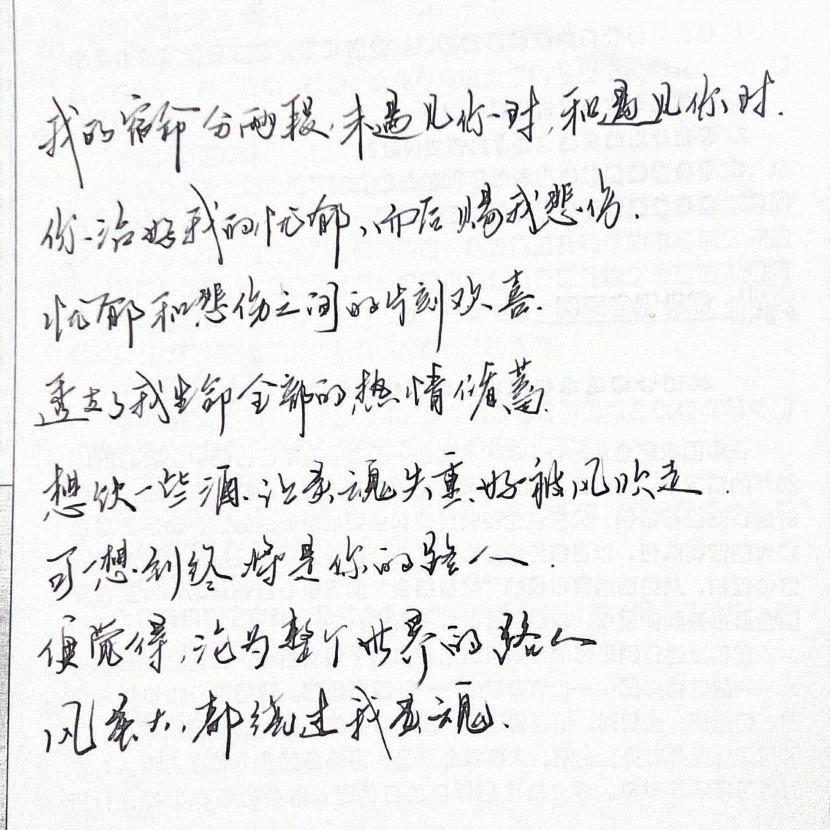 我的宿命分两段,未遇见你时,和遇见你时.
你治好我的忧郁,而后赐我悲伤.
忧郁和悲伤之间的片刻欢喜.
透支了我生命全部的热情储蓄.
想饮一些酒.让灵魂失重.好被风吹走.
可一想到终将是你的路人.
便觉得,沦为整个世界的路人
风虽大,都绕过我灵魂.